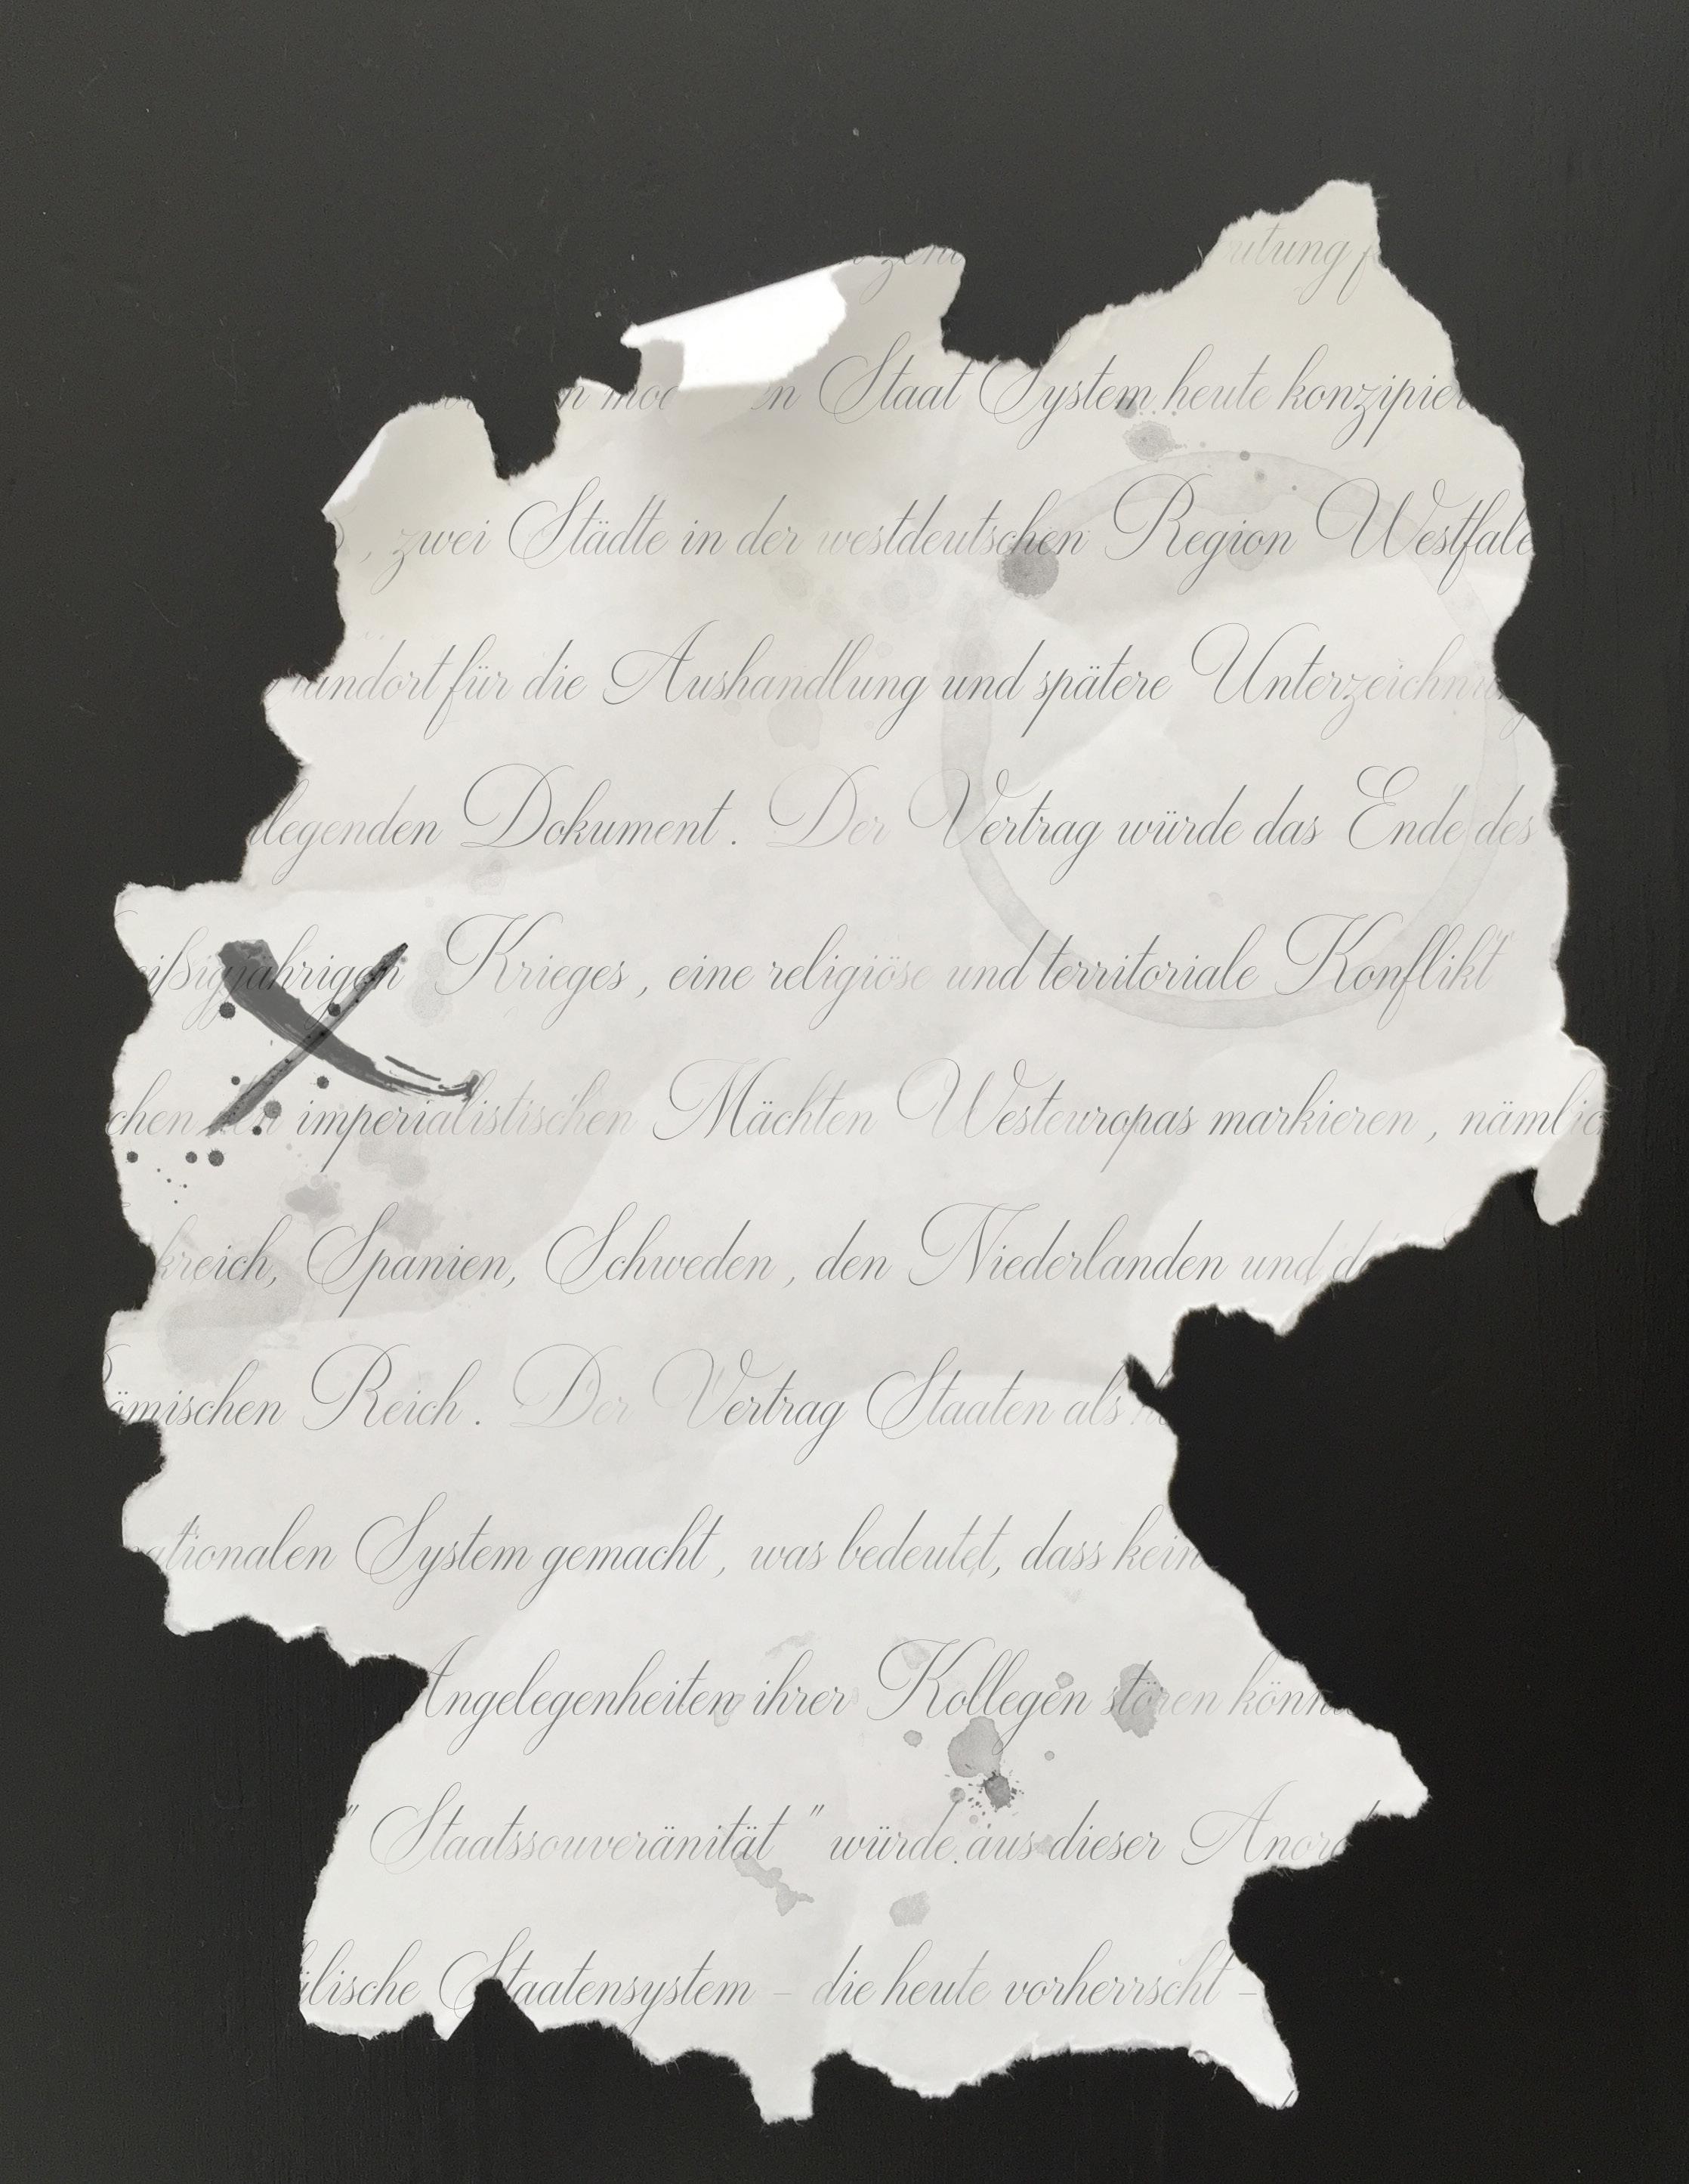 Staat System heute konzipier
, zwei Städte in der westdeutschen Region Westfale
für die Aushandlung und spätere Unterzeichnung
legenden Dokument . Der Vertrag würde das Ende des
Krieges , eine religiöse und territoriale Konflikt
chen imperialistischen Mächten Westeuropas markieren , nämlic
kreich, Spanien, Schweden , den Niederlanden und de
ömischen Reich . Der Vertrag Staaten als
ationalen System gemacht , was bedeutet, dass kein
Angelegenheiten ihrer Kollegen stören könne
" Staatssouveränität " würde aus dieser Anord
älische Staatensystem – die heute vorherrscht –